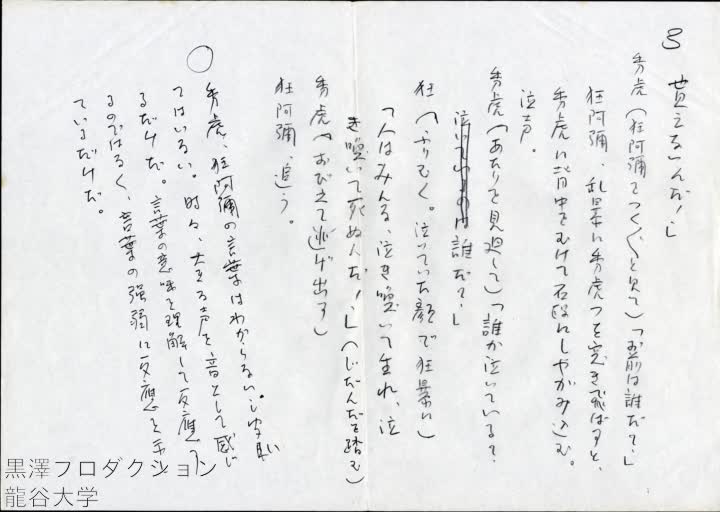 3
貰えるんだ！」
秀虎（狂阿彌をつく〲と見て）「お前は誰だ？」
狂阿彌、乱暴に秀虎つを突き飛ばすと、
秀虎に背中をむけて石段にしゃがみ込む。
泣声。
秀虎（あたりを見廻して）「誰か泣いている？
泣いているのは誰だ？」
狂（ふりむく。泣いていた顔で狂暴に）
「人はみんな、泣き喚いて生れ、泣
き喚いて死ぬんだ！」（じだんだを踏む）
秀虎（おびえて逃げ出す）
狂阿彌、追う。
○
秀虎、狂阿彌の言葉はわからない。
てはいる。時々、大きな声を音として感じ
るだけだ。言葉の意味を理解して反應す
るのではなく、言葉の強弱に反應を示し
ているだけだ。
黒澤プロダクション
龍谷大学